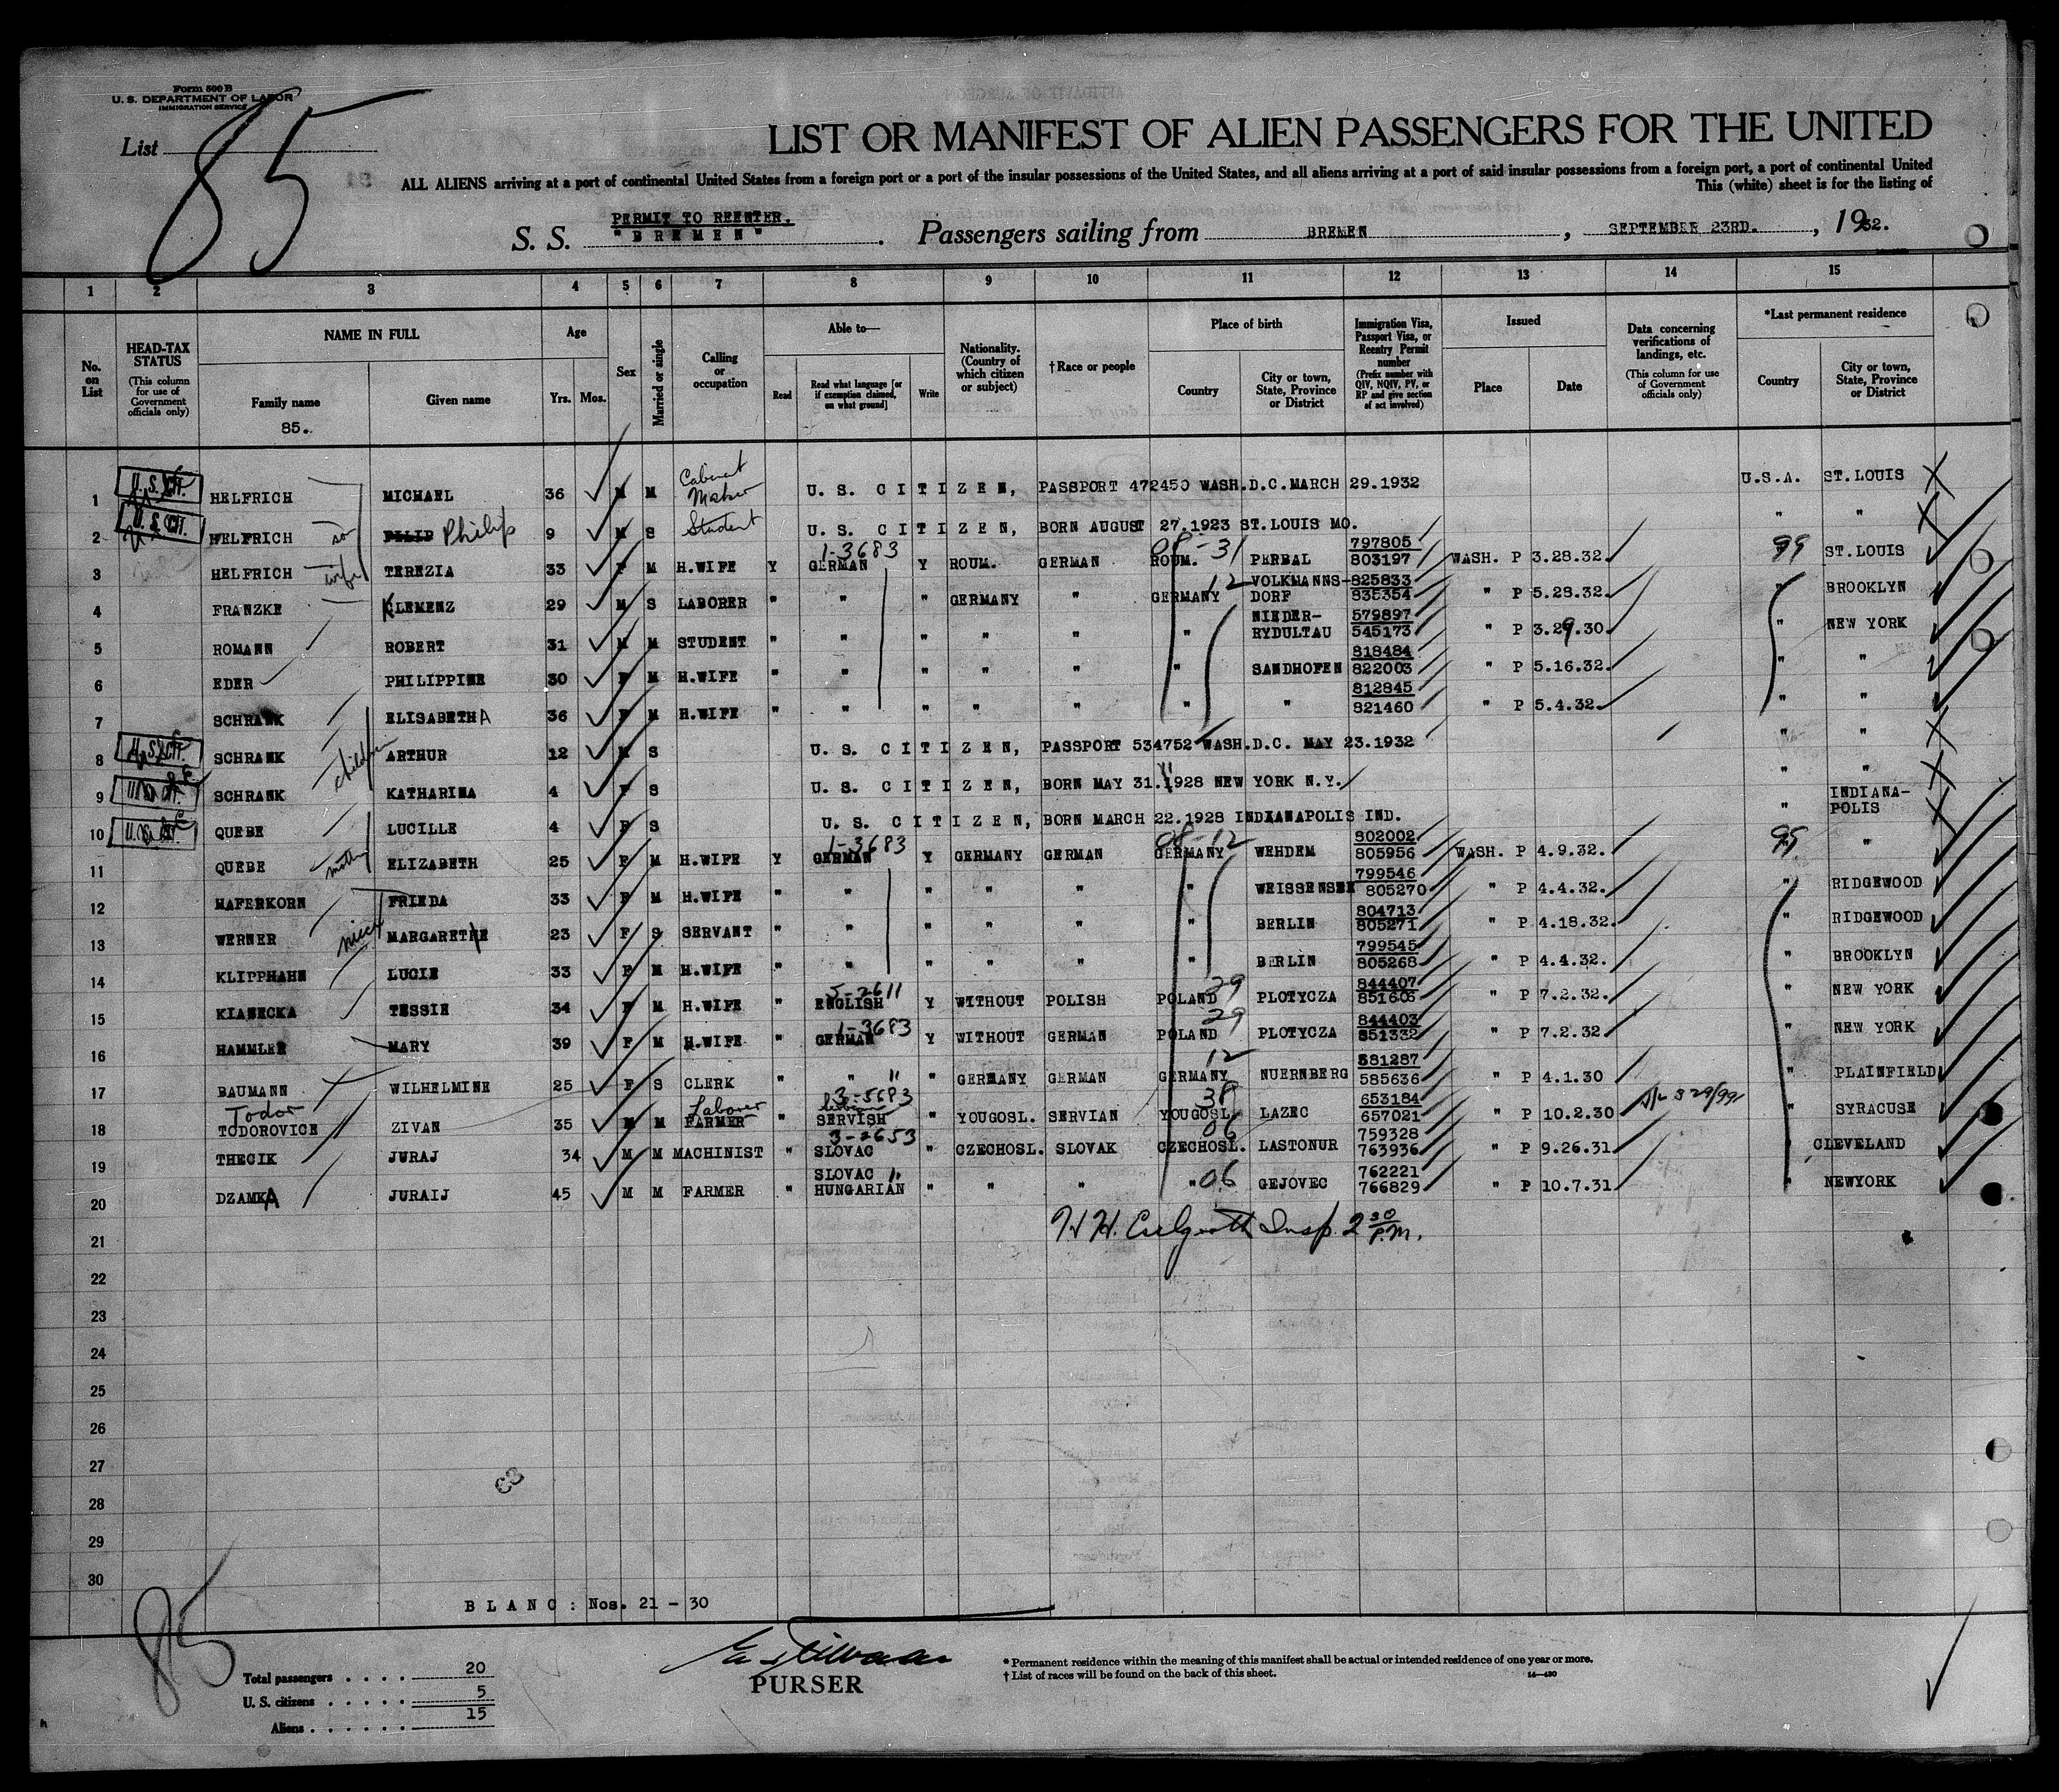 Form 500 B
U. S. DEPARTMENT OF LABOR
IMMIGRATION SERVICE
List 85
LIST OR MANIFEST OF ALIEN PASSENGERS FOR THE UNITED
ALL ALIENS arriving at a port of continental United States from a foreign port or a port of the insular possessions of the United States, and all aliens arriving at a port of said insular possessions from a foreign port, a port of continental United
This (white) sheet is for the listing of
PERMIT TO REENTER.
S. S. "BREMEN". Passengers sailing from BREMEN, SEPTEMBER 23RD., 1932.
1 2 3 4 5 6 7 8 9 10 11 12 13 14 15
No. on List
HEAD-TAX STATUS (This column for use of Government officials only)
NAME IN FULL
Family name
Given name
85.
Age
Yrs. Mos.
Sex
Married or single
Calling or occupation
Able to—
Read
Read what language [or if exemption claimed, on what ground]
Write
Nationality. (Country of which citizen or subject)
†Race or people
Place of birth
Country
City or town, State, Province or District
Immigration Visa, Passport Visa, or Reentry Permit number (Prefix number with QIV, NQIV, PV, or RP and give section of act involved)
Issued
Place
Date
Data concerning verifications of landings, etc. (This column for use of Government officials only)
*Last permanent residence
Country
City or town, State, Province or District
1 U.S. CIT. HELFRICH MICHAEL 36 M M Cabinet Maker U. S. CITIZEN, PASSPORT 472450 WASH.D.C. MARCH 29.1932 U.S.A. ST.LOUIS
2 U.S. CIT. HELFRICH son PILIP Philip 9 M S Student U. S. CITIZEN, BORN AUGUST 27.1923 ST.LOUIS MO. " "
3 HELFRICH wife TEREZIA 33 F M H.WIFE Y 1-3683 GERMAN Y ROUM. GERMAN 08-31 ROUM. PERBAL 797805 803197 WASH. P 3.28.32. 99 ST.LOUIS
4 FRANZKE KLEMENZ 29 M S LABORER " " " GERMANY " 12 GERMANY VOLKMANNS-DORF 825833 835354 " P 5.28.32. " BROOKLYN
5 ROMANN ROBERT 31 M M STUDENT " " " " " " NIEDER-RYDULTAU 579897 545173 " P 3.29.30. " NEW YORK
6 EDER PHILIPPINE 30 F M H.WIFE " " " " " " SANDHOFEN 818484 822003 " P 5.16.32. " "
7 SCHRANK ELISABETHA 36 F M H.WIFE " " " " " " " 812845 821460 " P 5.4.32. " "
8 U.S. CIT. SCHRANK children ARTHUR 12 M S U. S. CITIZEN, PASSPORT 534752 WASH.D.C. MAY 23.1932 " "
9 SCHRANK KATHARINA 4 F S U. S. CITIZEN, BORN MAY 31.1928 NEW YORK N.Y. " "
10 U.S. CIT. QUEBE LUCILLE 4 F S U. S. CITIZEN, BORN MARCH 22.1928 INDIANAPOLIS IND. " INDIANA-POLIS
11 QUEBE mother ELIZABETH 25 F M H.WIFE Y 1-3683 GERMAN Y GERMANY GERMAN 08-12 GERMANY WEHDEM 802002 805956 WASH. P 4.9.32. 95 "
12 HAFERKORN FRIEDA 33 F M H.WIFE " " " " " " WEISSENSEE 799546 805270 " P 4.4.32. " RIDGEWOOD
13 WERNER niece MARGARETHE 23 F S SERVANT " " " " " " BERLIN 804713 805271 " P 4.18.32. RIDGEWOOD
14 KLIPPHAHN LUCIE 33 F M H.WIFE " " " " " " BERLIN 799545 805268 " P 4.4.32. BROOKLYN
15 KIANECKA TESSIE 34 F M H.WIFE " 5-2611 ENGLISH Y WITHOUT POLISH 29 POLAND PLOTYCZA 844407 851606 " P 7.2.32. " NEW YORK
16 HAMMLER MARY 39 F M H.WIFE " 1-3683 GERMAN Y WITHOUT GERMAN 29 POLAND PLOTYCZA 844403 851332 " P 7.2.32. " NEW YORK
17 BAUMANN WILHELMINE 25 F S CLERK " " " GERMANY GERMAN 12 GERMANY NUERNBERG 581287 585636 " P 4.1.30 " PLAINFIELD
18 Todor TODOROVICH ZIVAN 35 M M Laborer FARMER " 3-5683 SERVISH " YOUGOSL. SERVIAN 38 YOUGOSL. LAZEC 653184 657021 " P 10.2.30 " SYRACUSE
19 THECIK JURAJ 34 M M MACHINIST " 3-2653 SLOVAC " CZECHOSL. SLOVAK 06 CZECHOSL. LASTONUR 759328 763936 " P 9.26.31 " CLEVELAND
20 DZAMKA JURAIJ 45 M M FARMER " SLOVAC HUNGARIAN " " " " 06 GEJOVEC 762221 766829 " P 10.7.31 " NEWYORK
21 H. H. Insp. 2 30 P.M.
22
23
24
25
26
27
28
29
30
BLANC : Nos. 21 - 30
85
Total passengers . . . . 20
U. S. citizens . . . . . 5
Aliens . . . . . . 15
PURSER
* Permanent residence within the meaning of this manifest shall be actual or intended residence of one year or more.
† List of races will be found on the back of this sheet.
14—430